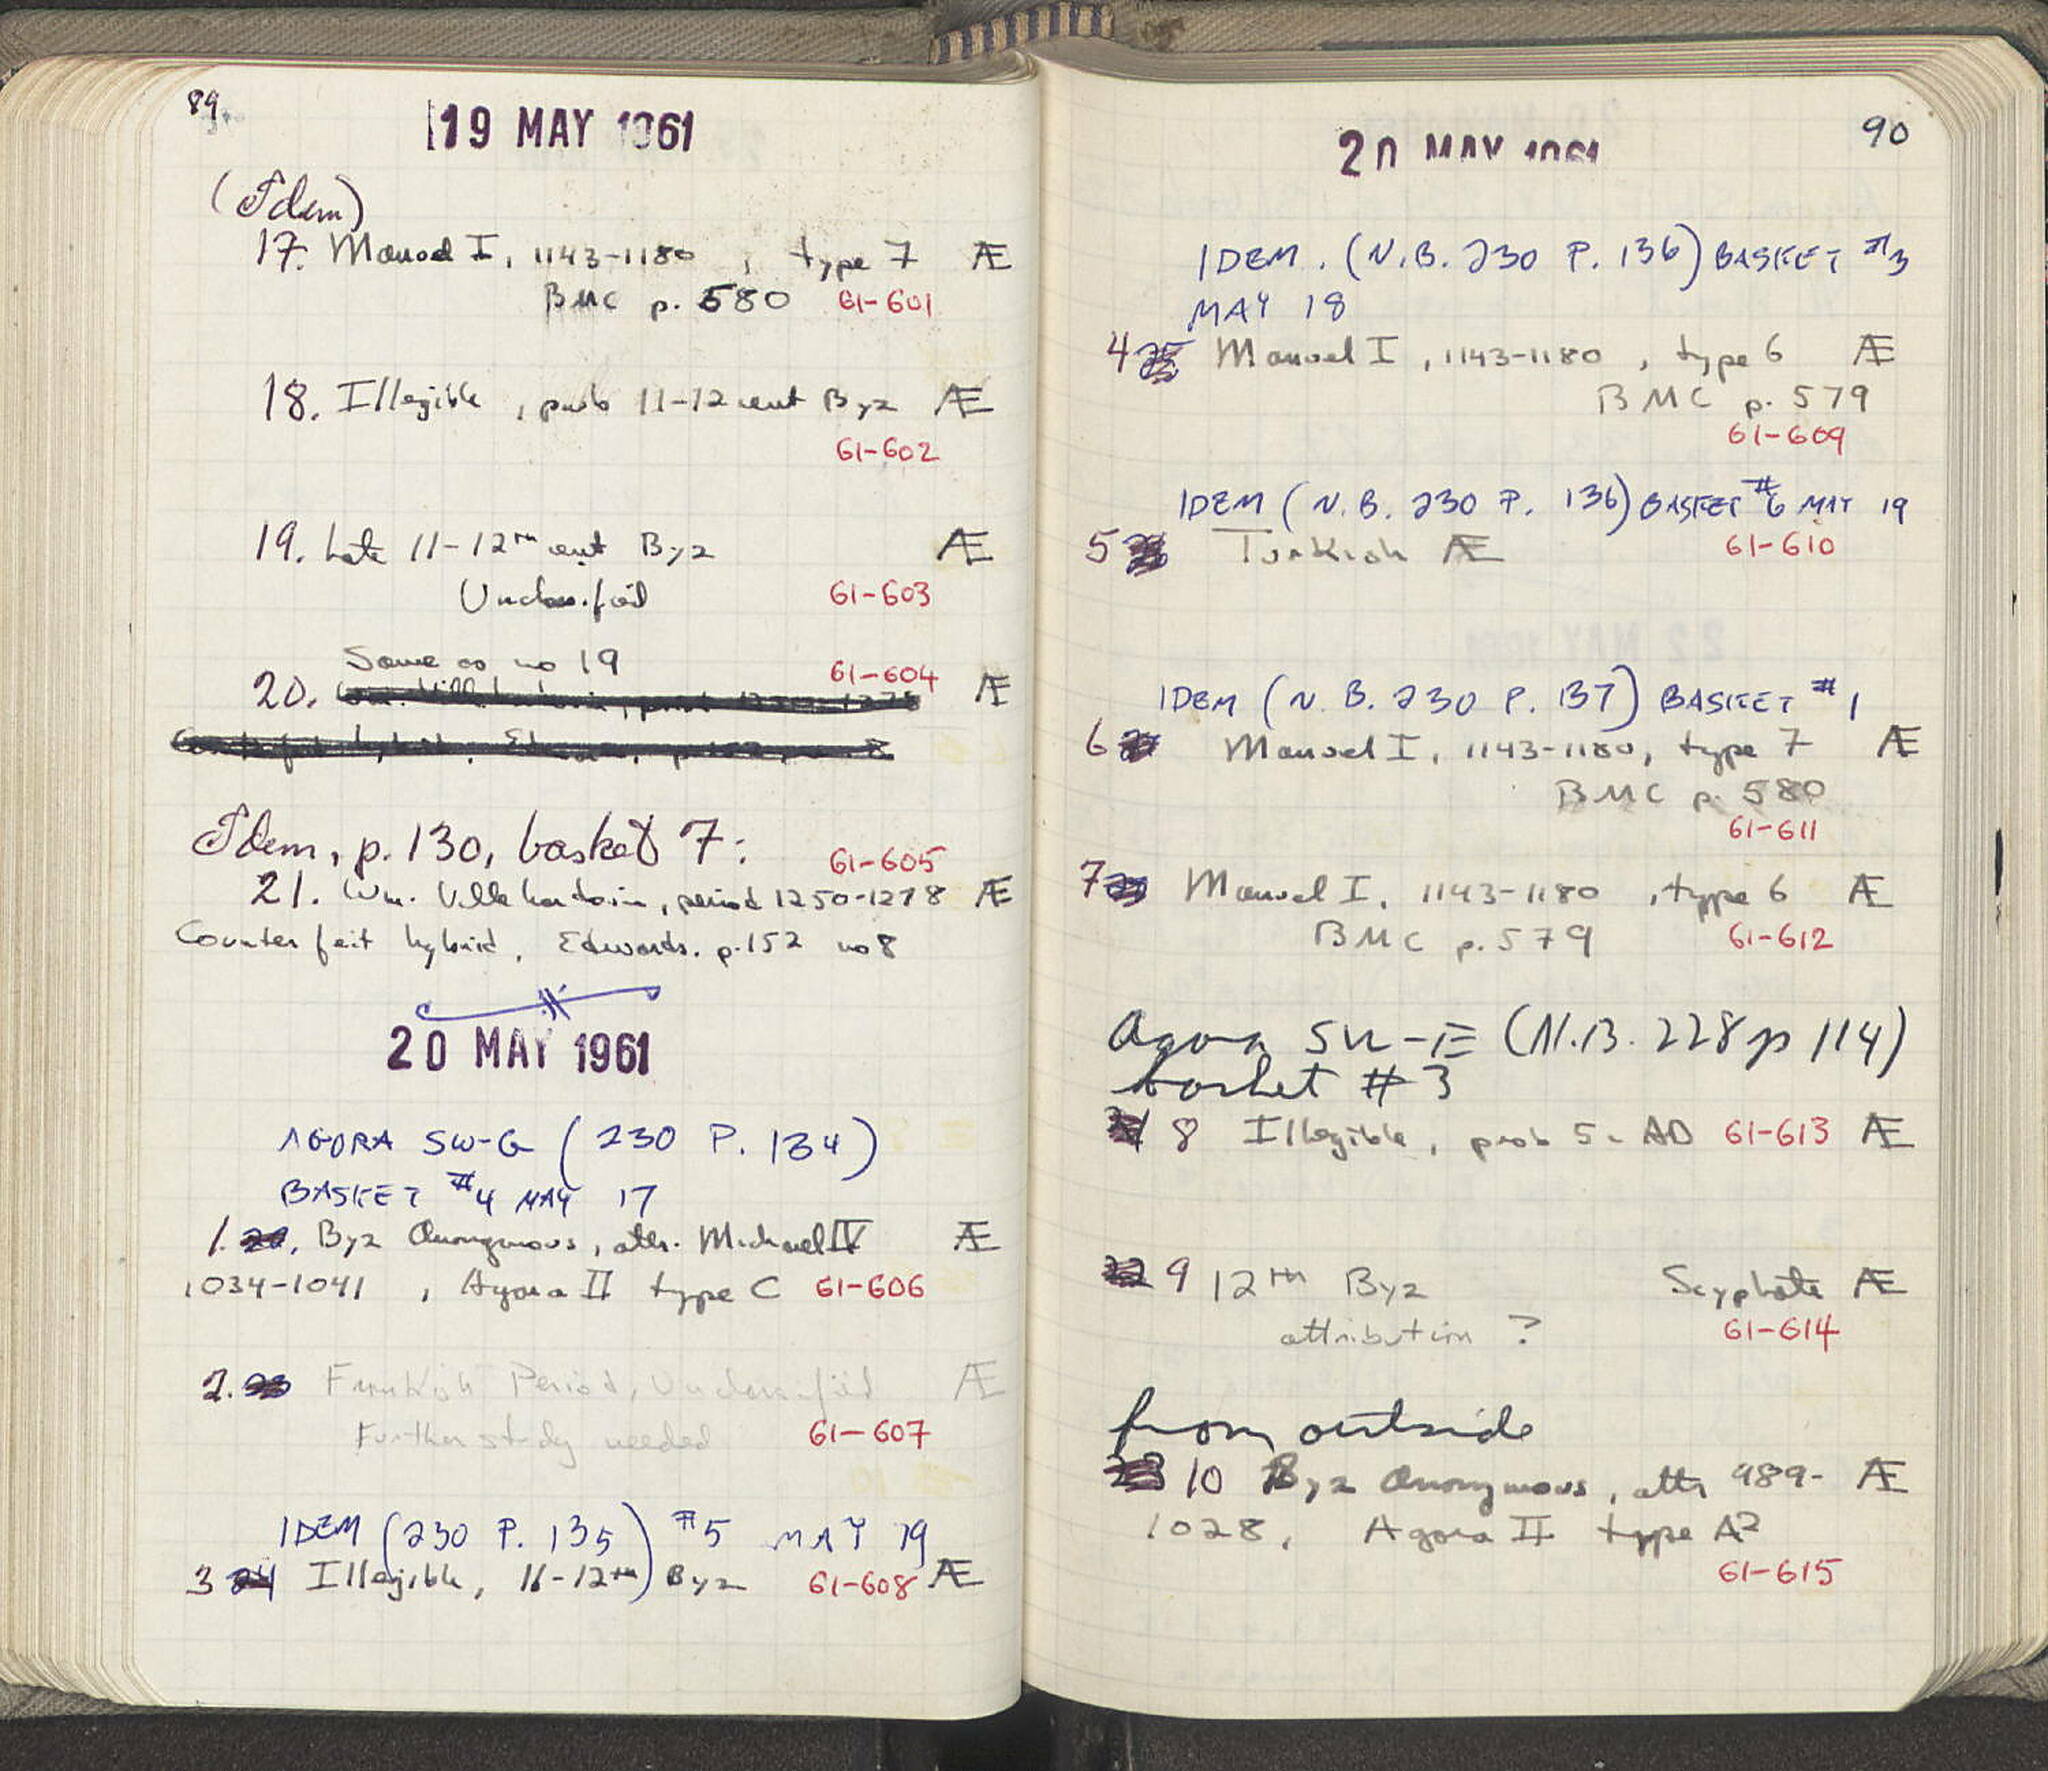 89
19 MAY 1961
(Idem)
17. Manuel I, 1143-1180, type 7 Æ
BMC p. 580 61-601
18. Illegible, prob 11-12 cent Byz Æ
61-602
19. Late 11-12th cent Byz Æ
Unclassified 61-603
Same as no 19 61-604
20. Æ
Idem, p. 130, basket 7: 61-605
21. Wm. Villehardouin, period 1250-1278 Æ
Counterfeit hybrid, Edwards. p. 152 no 8
20 MAY 1961
AGORA SW-G (230 P. 134)
BASKET #4 MAY 17
1. Byz Anonymous, attr. Michael IV Æ
1034-1041, Agora II type C 61-606
2. Frankish Period, Unclassified Æ
Further study needed 61-607
IDEM (230 P. 135) #5 MAY 19
3 24 Illegible, 11-12th Byz 61-608 Æ
90
20 MAY 1961
IDEM. (N.B. 230 P. 136) BASKET #3
MAY 18
4 25 Manuel I, 1143-1180, type 6 Æ
BMC p. 579
61-609
IDEM (N.B. 230 P. 136) BASKET #6 MAY 19
5 Turkish Æ 61-610
IDEM (N.B. 230 P. 137) BASKET #1
6 Manuel I, 1143-1180, type 7 Æ
BMC p. 580
61-611
7 Manuel I, 1143-1180, type 6 Æ
BMC p. 579 61-612
Agora SW-E (N.B. 228 p 114)
basket #3
8 Illegible, prob 5c AD 61-613 Æ
22 9 12th Byz Scyphate Æ
attribution? 61-614
from outside
23 10 Byz Anonymous, attr 989- Æ
1028, Agora II type A2
61-615